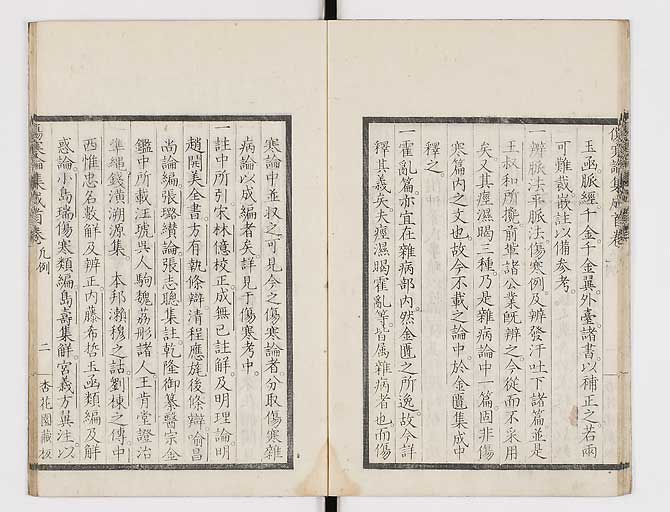 傷寒論集成首卷
玉函脈經千金千金翼外臺諸書以補正之若兩
可難裁嵌註以備參考
一辨脈法平脈法傷寒例及辨發汗吐下諸篇並是
王叔和所攙前輩諸公業既辨之今從而不采用
矣又其痙濕暍三種乃是雜病論中一篇固非傷
寒篇內之文也故今不載之論中於金匱集成中
釋之
一霍亂篇亦宜在雜病部內然金匱之所逸故今詳
釋其義矣夫痙濕暍霍亂等皆屬雜病者也而傷
寒論中並叙之可見今之傷寒論者分取傷寒雜
病論以成編者矣詳見于傷寒考中
一註中所引宋林億校正成無已註解及明理論明
趙開美全書方有執條辯清程應旄後條辯喻昌
尚論編張璐纘論張志聰集註乾隆御纂醫宗金
鑑中所載汪琥吳人駒魏荔彤諸人王肯堂證治
準繩錢潢溯源集本邦瀨穆之詁劉棟之傳中
西惟忠名數解及辨正內藤希哲玉函類編及解
惑論小島瑞傷寒類編島壽集解宮義方興注以
傷寒論集成首卷 凡例 二 杏花園藏板